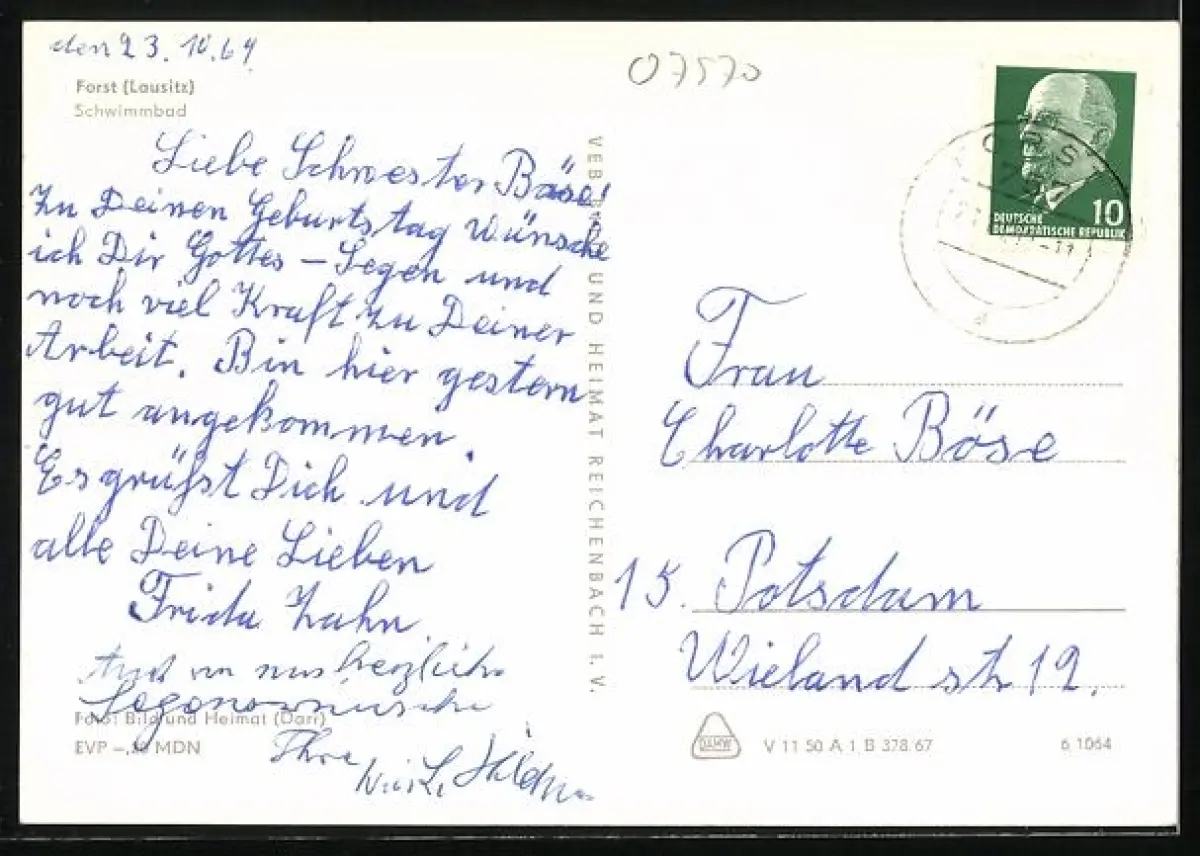 den 23. 10. 69
Forst (Lausitz)
Schwimmbad
Liebe Schwester Böse!
Zu Deinen Geburtstag wünsche
ich Dir Gottes – Segen und
noch viel Kraft zu Deiner
Arbeit. Bin hier gestern
gut angekommen.
Es grüßt Dich und
alle Deine Lieben
Frida Zahn.
Auch von uns herzliche
Segenswünsche
Ihre
Foto: Bild und Heimat (Darr)
EVP – MDN
VEB UND HEIMAT REICHENBACH I. V.
07570
FORST
10
DEUTSCHE
DEMOKRATISCHE REPUBLIK
Frau
Charlotte Böse
15. Potsdam
Wieland str 12.
DAMW
V 11 50 A 1 B 378/67
6 1064